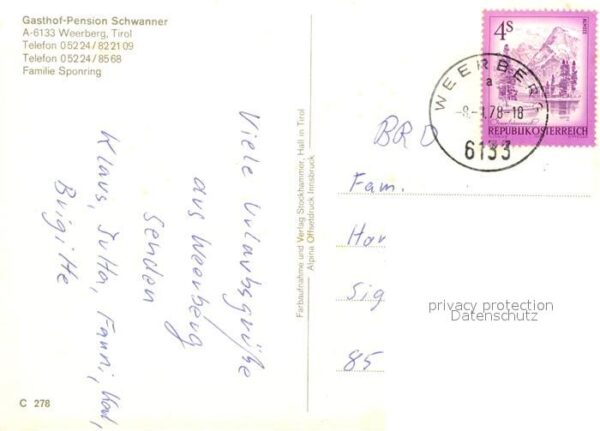 Gasthof-Pension Schwanner
A-6133 Weerberg, Tirol
Telefon 05224/82 21 09
Telefon 05224/85 68
Familie Sponring
Viele Urlaubsgrüße
aus Weerberg
senden
Klaus, Jutta, Fanni,
Brigitte
C 278
Farbaufnahme und Verlag Stockhammer, Hall in Tirol
Alpina Offsetdruck Innsbruck
4S
REPUBLIK ÖSTERREICH
WEERBERG
a
78-18
6133
BRD
Fam.
Har
Sig
85
privacy protection
Datenschutz